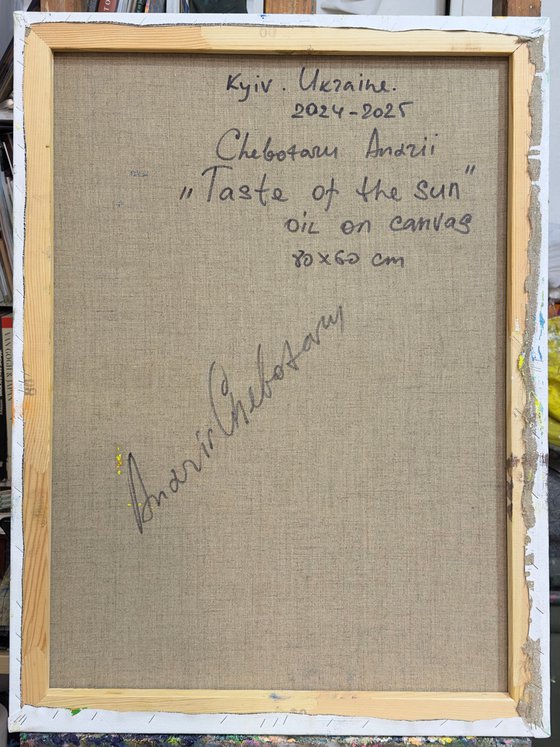 Kyiv. Ukraine.
2024-2025
Chebotaru Andrii
„Taste of the sun"
OIL on canvas
80x60 cm
Andrii Chebotaru